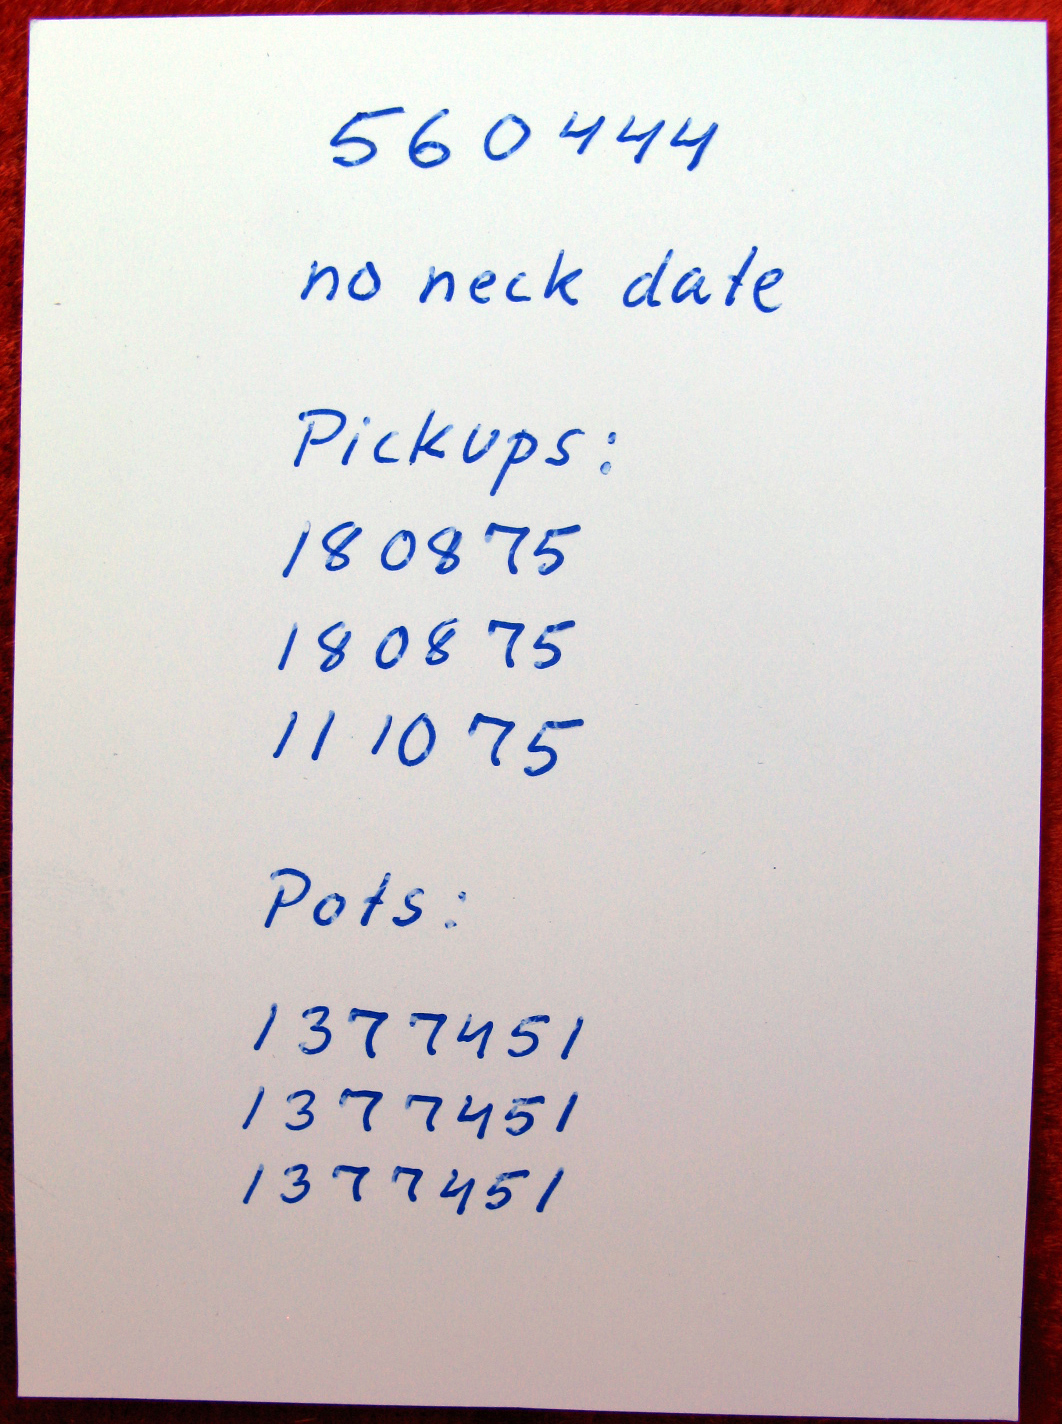 560444
no neck date
Pickups:
180875
180875
111075
Pots:
1377451
1377451
1377451